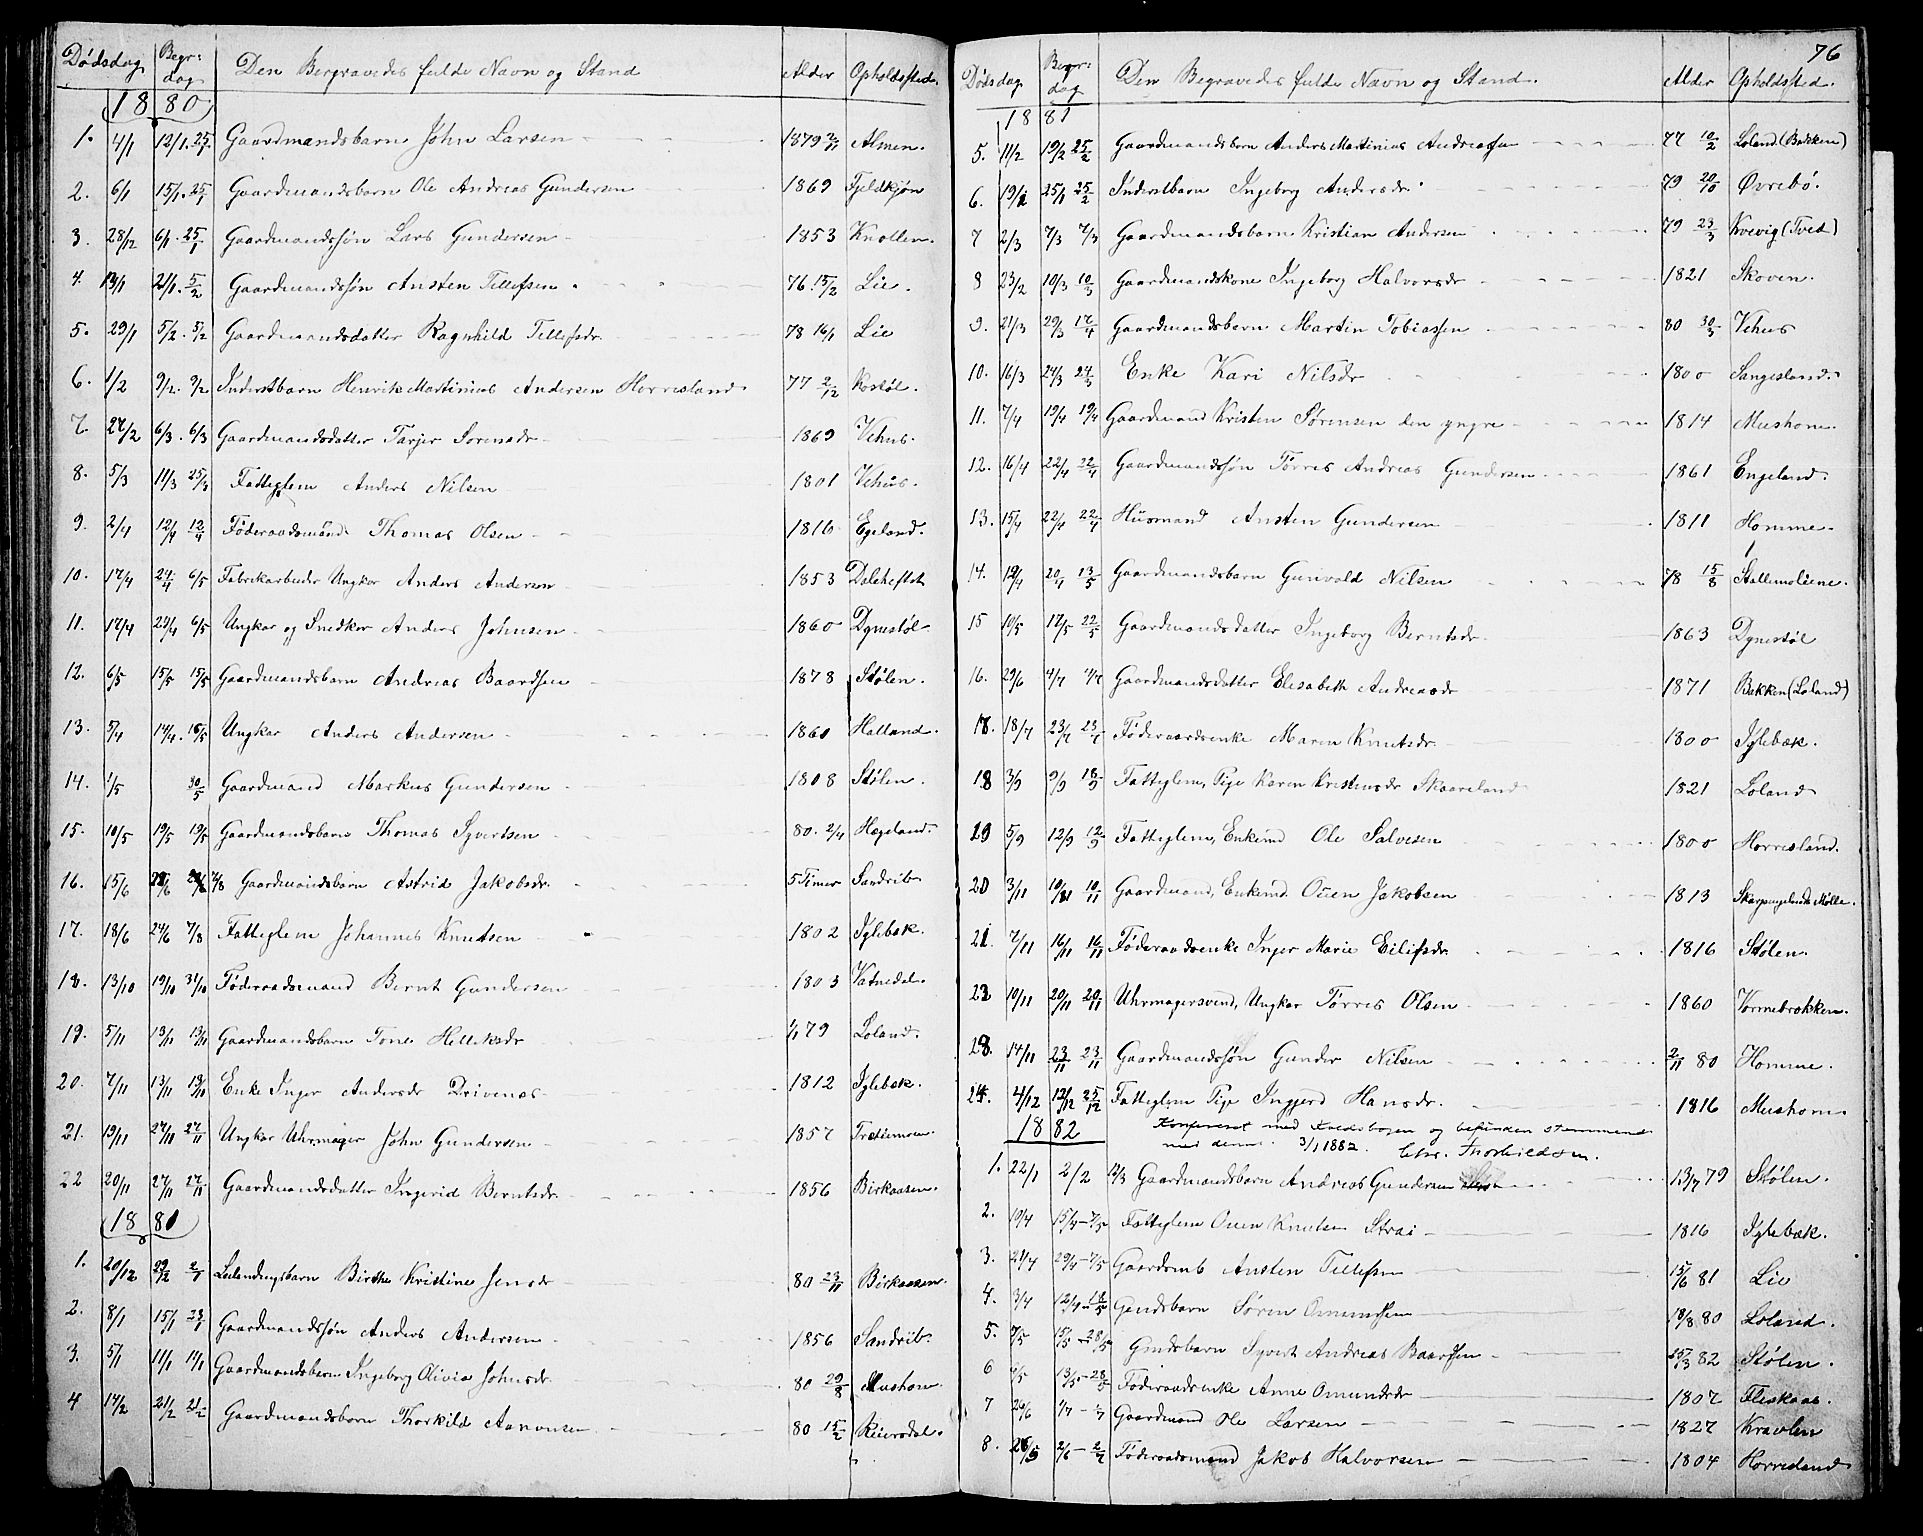 76
Dødsdag Begr: dag Den Begravedes fulde Navn og Stand Alder Opholdssted.
1880
1. 4/1 12/1. 25/1 Gaardmandsbarn John Larsen 1879 Almen.
2. 6/1 15/1. 25/1 Gaardmandsbarn Ole Andreas Gundersen 1869 Fjeldkjøn
3. 28/12 6/1. 25/1 Gaardmandssøn Lars Gundersen 1853 Knollen.
4. 21/1. 5/2 Gaardmandssøn Austen Tellefsen 76. 15/2 Lie.
5. 29/1 5/2. 5/2 Gaardmandsdatter Ragnhild Tellefsdr. 78 16/1 Lie
6. 1/2 9/2. 9/2 Inderstbarn Henrik Martinius Andersen Horrisland 77 2/12 Kostøl.
7. 27/2 6/3. 6/3 Gaardmandsdatter Tarjer Sorensdr 1869 Vehus.
8. 5/3 11/3 25/3 Fattiglem Anders Nilsen 1801 Vehus.
9. 2/4 12/4 12/4 Føderaadsmand Thomas Olsen 1816 Egeland.
10. 17/4 24/4 6/5 Fabrikarbeider Ungkar Anders Andersen 1853 Daleheftet
11. 17/4 24/4 6/5 Ungkar og Snedker Anders Johnsen 1860 Dynestøl
12. 6/5 15/5 15/5 Gaardmandsbarn Andreas Baardsen 1878 Stølen.
13. 5/4 14/4. 16/5 Ungkar Anders Andersen 1860 Halland.
14. 1/5 30/5 Gaardmand Markus Gundersen 1808 Stølen.
15. 10/5 19/5 19/5 Gaardmandsbarn Thomas Syvertsen 80. 2/4 Hægeland.
16. 15/6 7/8 Gaardmandsbarn Astrid Jakobsdr. 5 Timer Sandrib
17. 18/6 24/6 7/8 Fattiglem Johannes Knutsen 1802 Iglebæk.
18. 13/10 19/10 31/10 Føderaadsmand Bernt Gundersen 1803 Vatnedal.
19. 5/11 13/11 13/11 Gaardmandsbarn Tone Helleksdr 1/1 79 Loland.
20. 7/11 13/11 13/11 Enke Inger Andersdr Drivenes 1812 Iglebæk.
21. 19/11 27/11 27/11 Ungkar Uhrmager John Gundersen 1857
22 20/11 27/11 27/11 Gaardmandsdatter Ingerid Berntsdr. 1856 Birkaasen.
1881
1. 20/12 29/12 2/1 Leilændingsbarn Birthe Kristine Jensdr 80 23/11 Birkaasen.
2. 8/1 15/1 23/1 Gaardmandssøn Anders Andersen 1856 Sandrib.
3. 5/1 11/1 11/1 Gaardmandsbarn Ingeborg Olivia Johnsdr. 80 29/8 Mushom.
4 14/2 21/2 21/2 Gaardmandsbarn Thorkild Aanonsen 80 15/2 Reiersdal.
Dødsdag Begr: dag Den Begravedes fulde Navn og Stand. Alder Opholdssted.
1881
5. 11/2 19/2 25/2 Gaardmandsbarn Anders Martinius Andreassen 77 10/2 Loland (Bakken)
6. 19/1 25/1 25/2 Inderstbarn Ingeborg Andersdr. 79 20/10 Øvrebø.
7 2/3 7/3 7/3 Gaardmandsbarn Kristian Andersen 79 23/3 Kvevig (Tved)
8 23/2 10/3 10/3 Gaardmandskone Ingeborg Halvorsdr 1821 Skoven.
9. 21/3 29/3 17/4 Gaardmandsbarn Martin Tobiassen 80 30/3 Vehus
10. 16/3 24/3 24/3 Enke Kari Nilsdr 1800 Sangesland.
11. 7/4 19/4 19/4 Gaardmand Kristen Sørensen den yngre 1814 Mushom.
12. 16/4 22/4 22/4 Gaardmandssøn Tørres Andreas Gundersen 1861 Engeland.
13. 15/4 22/4 22/4 Husmand Austen Gundersen 1811 Homme.
14. 12/4 20/4 13/5 Gaardmandsbarn Gunvald Nilsen 78 15/8 Stallemoliene.
15 10/5 17/5 22/5 Gaardmandsdatter Ingeborg Berntsdr. 1863 Dynestøl
16. 29/6 4/7 4/7 Gaardmandsdatter Elisabeth Andreasdr 1871 Bakken (Loland)
17. 18/7 23/7 23/7 Føderaadsenke Maren Knutsdr. 1800 Iglebæk.
18 3/9 9/9 18/9 Fattiglem, Pige Karen Kristensdr Skaareland 1821 Loland
19 5/9 12/9 12/9 Fattiglem, Enkemd Ole Salvesen 1800 Horrisland.
20 3/11 10/11 10/11 Gaardmand, Enkemd. Ouen Jakobsen 1813 Skarpengelands Mølle.
21. 7/11 16/11 16/11 Føderaadsenke Inger Marie Eilifsdr. 1816 Stølen.
22 10/11 20/11 20/11 Uhrmagersvend, Ungkar Tørres Olsen 1860 Vormebrokken.
23. 14/11 23/11 23/11 Gaardmandssøn Gunder Nilsen 2/11 80 Homme.
24. 4/12 12/12 25/12 Fattiglem Pige Inggjerd Hansdr. 1816 Mushom.
1882 Konfereret med Kredsbogen og befunden stemmende
med denne. 3/1 1882. Thorkildsen.
1. 22/1 2/2 12/3 Gaardmandsbarn Andreas Gundersen 13/7 79 Stølen.
2. 10/4 15/4-7/5 Fattiglem Ouen Knutsen Strai 1816 Iglebæk.
3. 21/4 29/4-7/5 Gaardmb Austen Tellefsen 15/6 81 Lie
4. 3/4 12/4-18/5 Gmdsbarn Søren Omundsen 19/8 80 Loland.
5. 7/5 15/5-28/5 Gmdsbarn Syvert Andreas Baardsen 25/3 82 Stølen.
6 6/5 13/5-28/5 Føderaadsenke Anne Omundsdr 1807 Fleskaas.
7 24/6 1/7-1/7 Gaardmand Ole Larsen 1827 Kraolen
8. 26/5 2/6-2/7 Føderaadsmand Jakob Halvorsen 1804 Horrisland